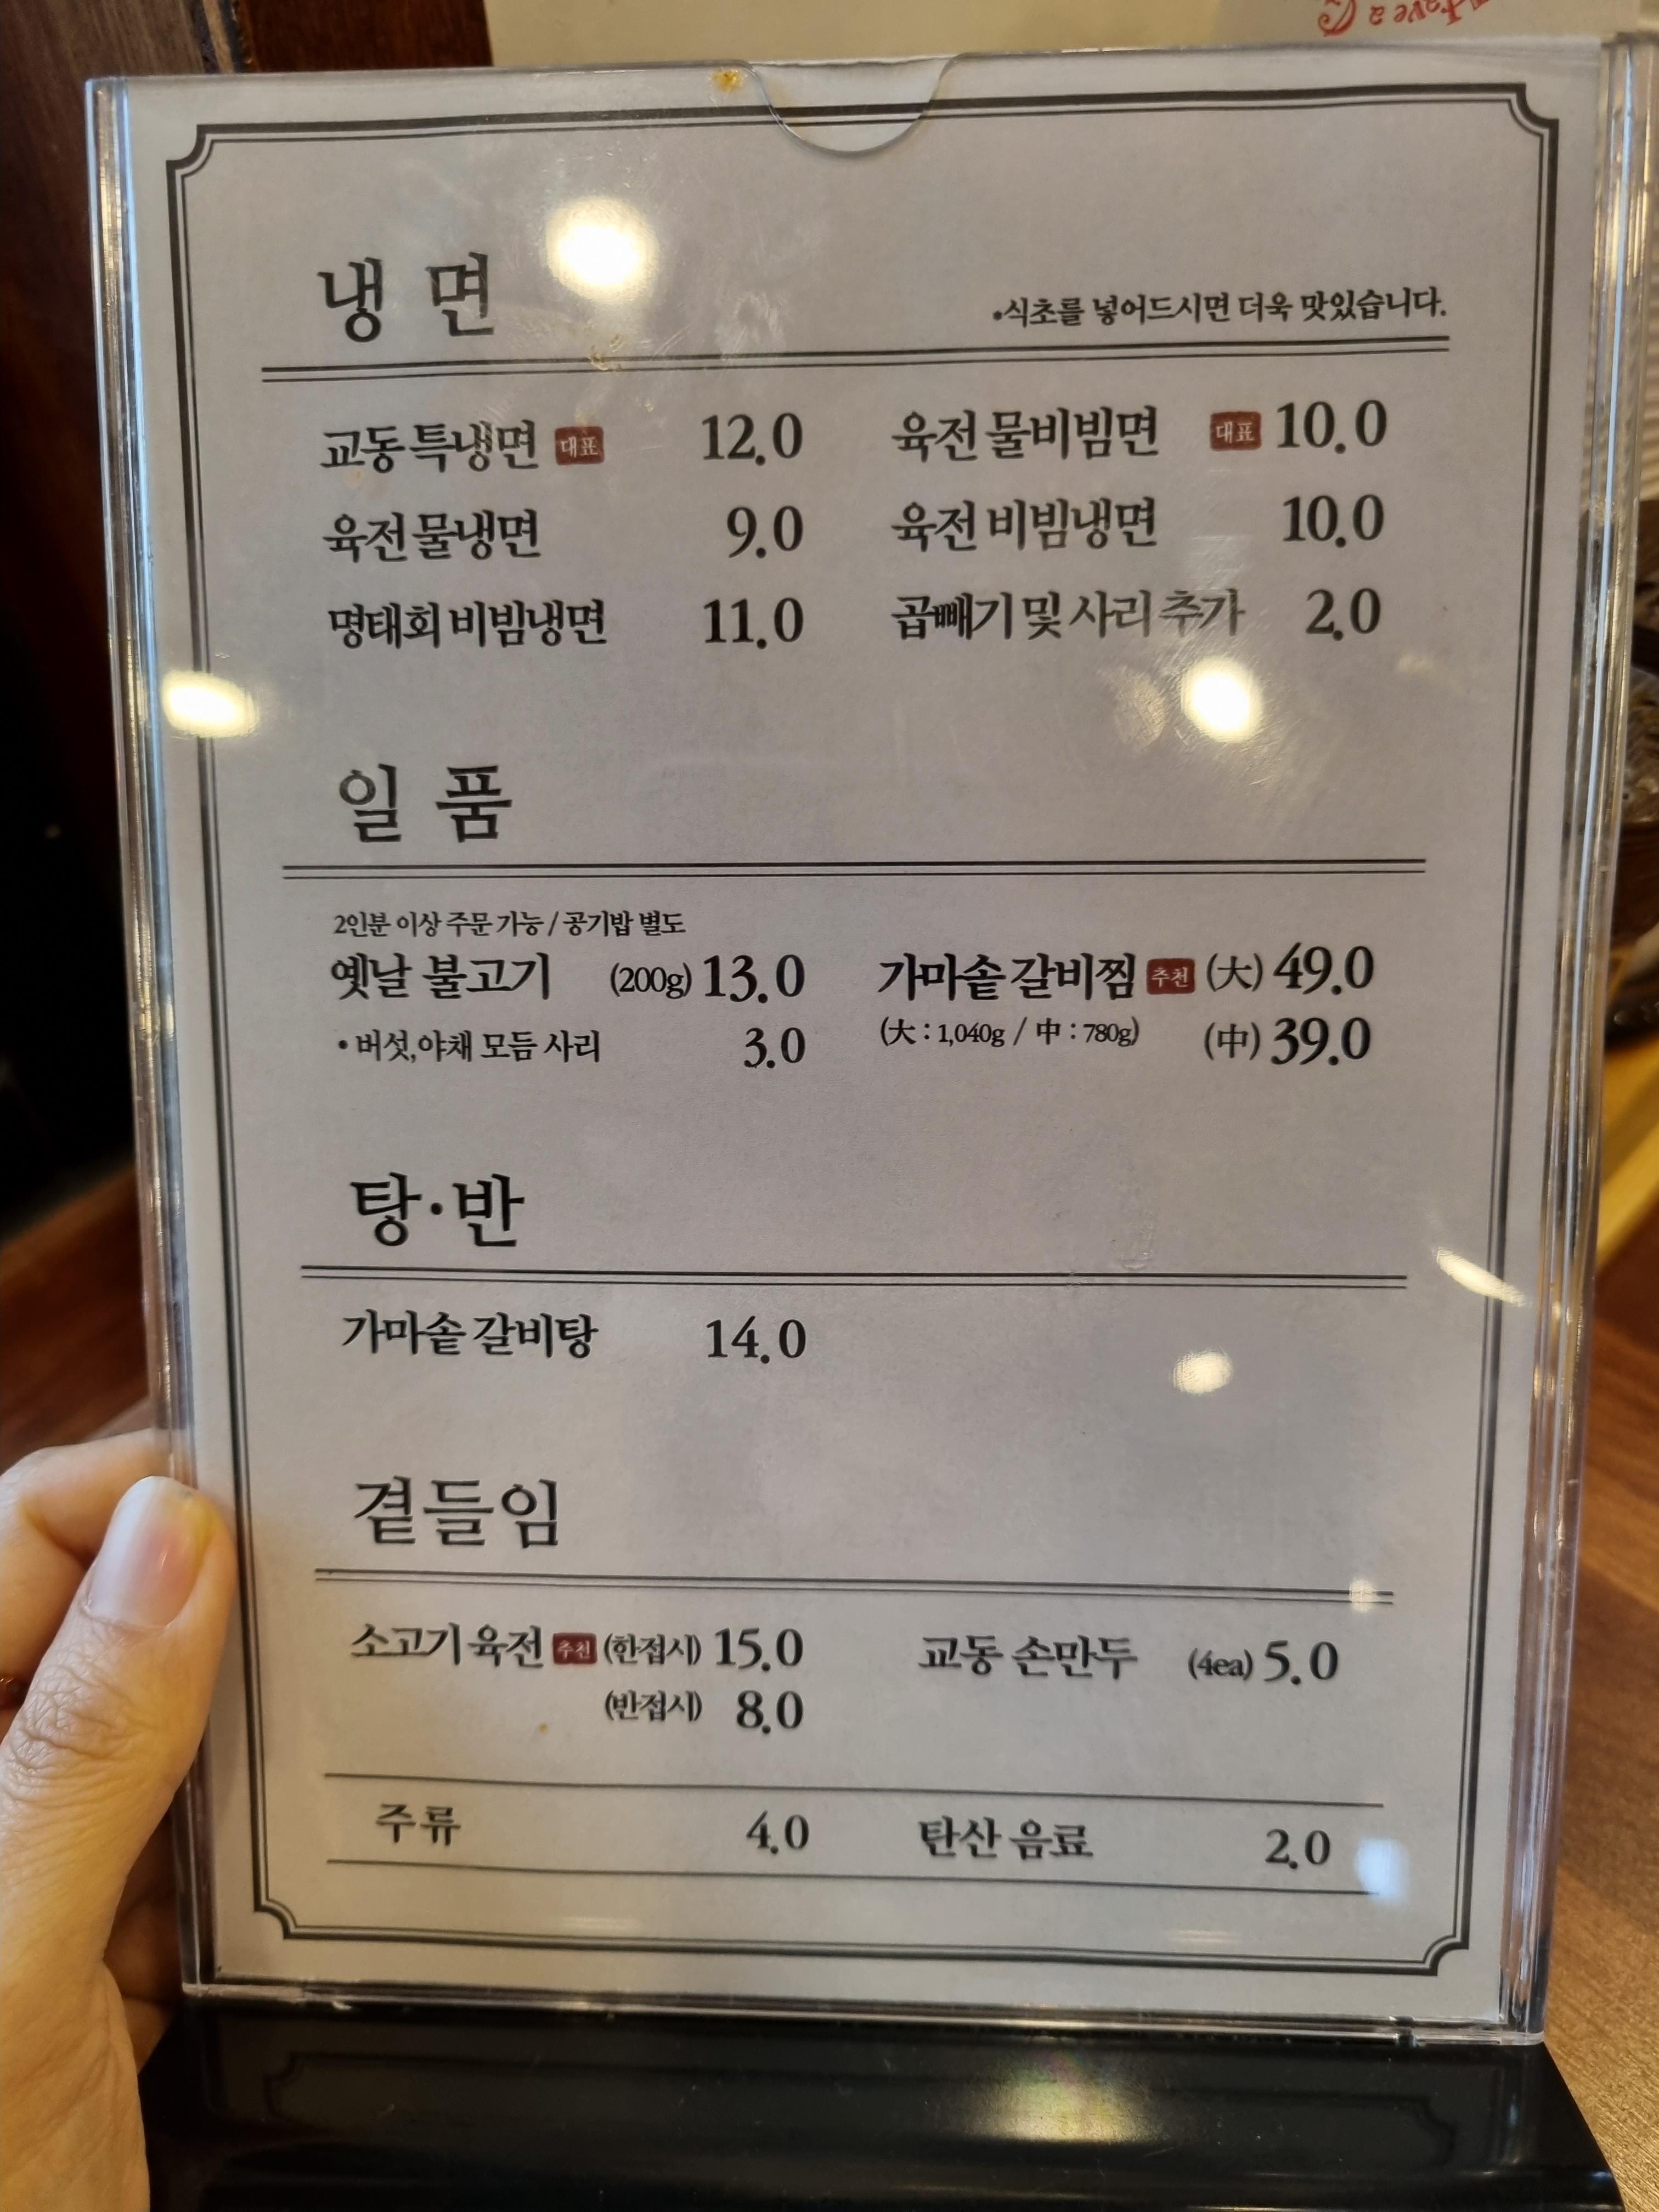 Have a
냉 면
•식초를 넣어드시면 더욱 맛있습니다.
교동 특냉면 대표 12.0 육전 물비빔면 대표 10.0
육전 물냉면 9.0 육전 비빔냉면 10.0
명태회 비빔냉면 11.0 곱빼기 및 사리 추가 2.0
일 품
2인분 이상 주문 가능 / 공기밥 별도
옛날 불고기 (200g) 13.0 가마솥 갈비찜 추천 (大) 49.0
• 버섯,야채 모듬 사리 3.0 (大 : 1,040g / 中 : 780g) (中) 39.0
탕·반
가마솥 갈비탕 14.0
곁들임
소고기 육전 추천 (한접시) 15.0 교동 손만두 (4ea) 5.0
(반접시) 8.0
주류 4.0 탄산 음료 2.0